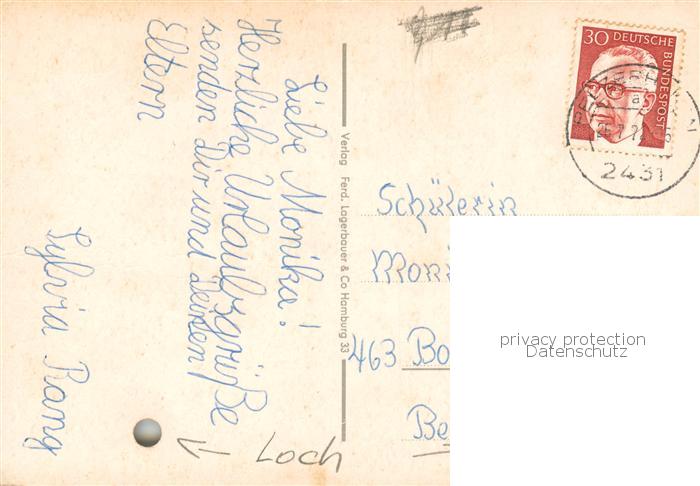 Liebe Monika!
Herzliche Urlaubsgrüße
senden Dir und Deinen
Eltern
Sylvia Rang
Verlag Ferd. Lagerbauer & Co Hamburg 33
30 DEUTSCHE
BUNDESPOST
2431
Schülerin
Moni
463 Bo
Be
← Loch
privacy protection
Datenschutz